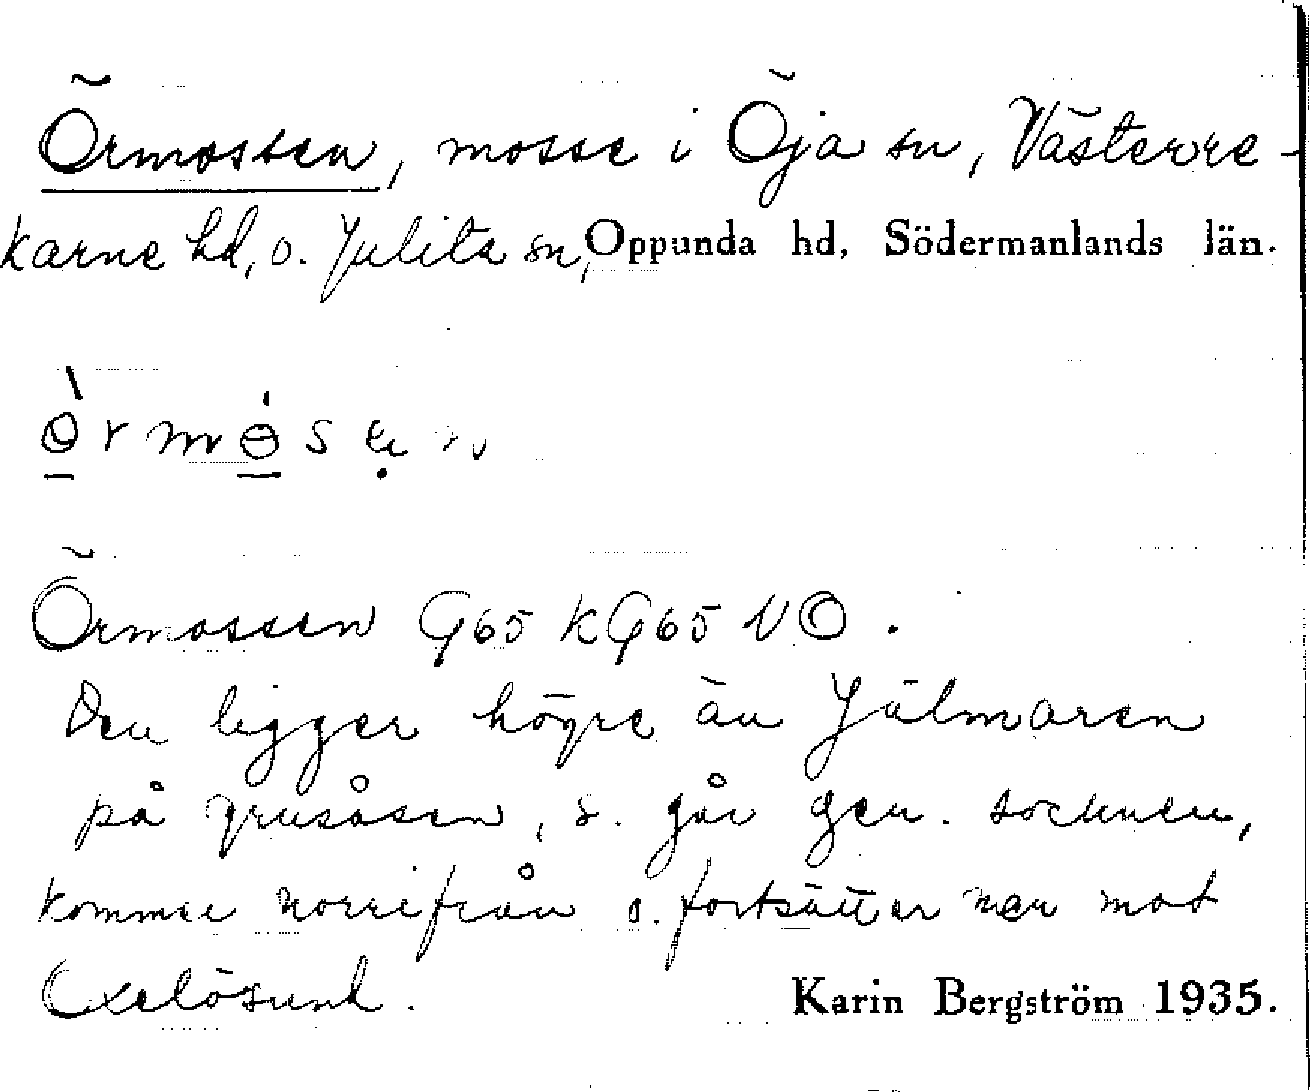 Örmossen, mosse i Öja sn, Västerre-
karne hd, o. Julita sn, Oppunda hd, Södermanlands län.
Örmossen G65 KG65 NO.
Den ligger högre än Hjälmaren
på grusåsen, s. går gen. socknen,
kommer norrifrån o. fortsätter ner mot
Oxelösund.
Karin Bergström 1935.